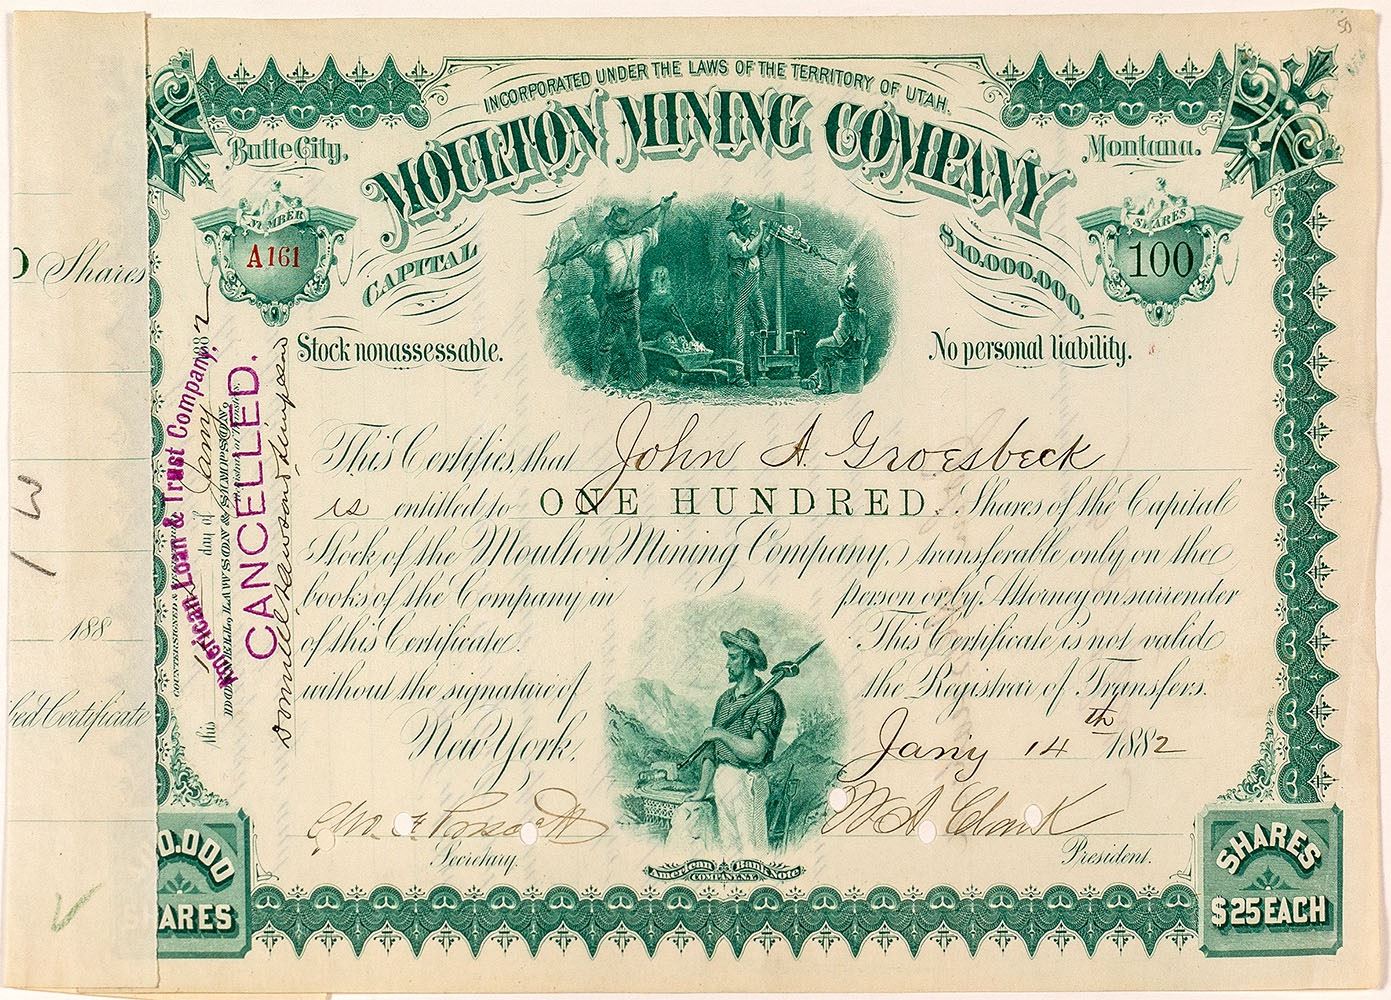 50
INCORPORATED UNDER THE LAWS OF THE TERRITORY OF UTAH.
MOULTON MINING COMPANY
Butte City,
Montana.
NUMBER
A161
SHARES
100
CAPITAL
$10,000,000.
Stock nonassessable.
No personal liability.
This Certifies, that John A. Groesbeck
is entitled to ONE HUNDRED. Shares of the Capital
Stock of the Moulton Mining Company, transferable only on the
books of the Company in person or by Attorney on surrender
of this Certificate. This Certificate is not valid
without the signature of the Registrar of Transfers.
New York, Jany 14th 1882
W. A. Clark
Secretary.
President.
American Bank Note
COMPANY, N.Y.
0.000
SHARES
SHARES
$25 EACH
American Loan & Trust Company.
CANCELLED.
COUNTERSIGNED &
this day of Jany 1882
Shares
188
Certificate